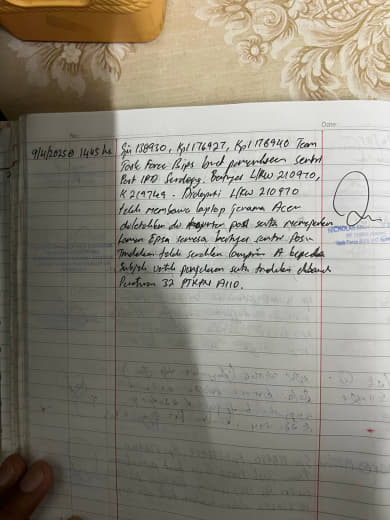 No.
Date
9/4/2025 @ 1445 hrs
Sjn 138930, Kpl 176927, Kpl 178940 Team
Task Force Bips buat pemeriksaan sentri
Post IPD Serdang. bertugas L/Kw 210970,
K 219749. Didapati L/Kw 210970
telah membawa laptop jenama Acer
diletakkan di post serta
laman semasa bertugas sentri Post
Tindakan telah serahkan lampiran A kepada
Subjek untuk penjelasan serta tindakan dibawah
Peraturan 32 PTKPN A110.